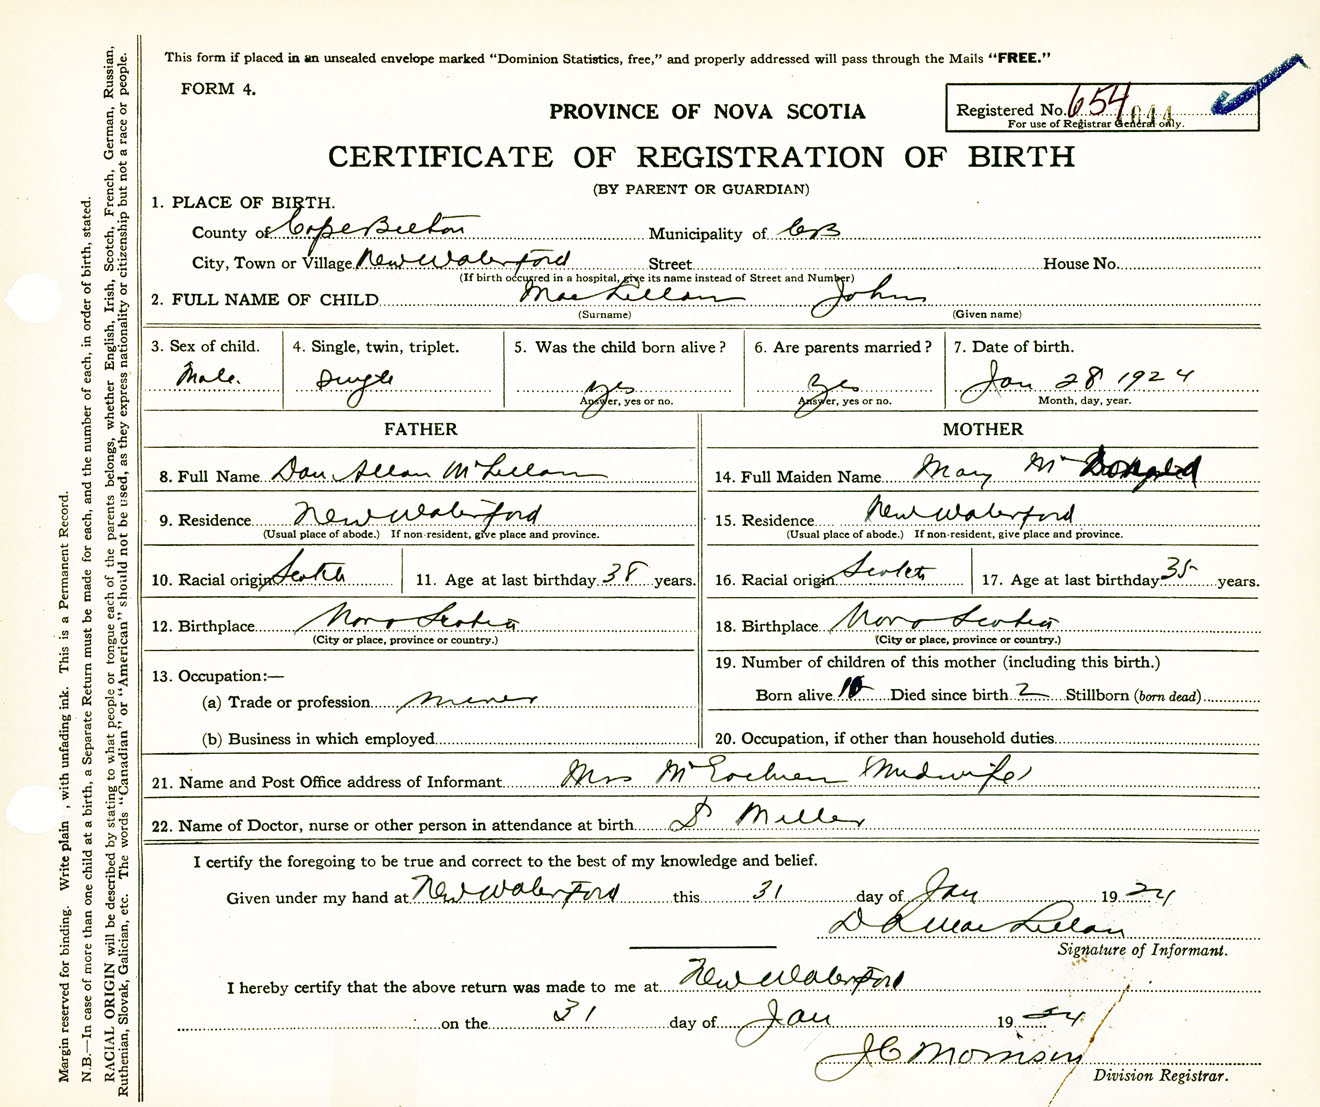 This form if placed in an unsealed envelope marked "Dominion Statistics, free," and properly addressed will pass through the Mails "FREE."
FORM 4.
Registered No. 654 1644
For use of Registrar General only.
PROVINCE OF NOVA SCOTIA
CERTIFICATE OF REGISTRATION OF BIRTH
(BY PARENT OR GUARDIAN)
1. PLACE OF BIRTH.
County of Cape Breton Municipality of CB
City, Town or Village New Waterford Street House No.
(If birth occurred in a hospital, give its name instead of Street and Number)
2. FULL NAME OF CHILD MacLellan John
(Surname) (Given name)
3. Sex of child. 4. Single, twin, triplet. 5. Was the child born alive? 6. Are parents married? 7. Date of birth.
Male. Single yes Yes Jan 28 1924
Answer, yes or no. Answer, yes or no. Month, day, year.
FATHER MOTHER
8. Full Name Dan Allan McLellan 14. Full Maiden Name Mary Mc Dongald
9. Residence New Waterford 15. Residence New Waterford
(Usual place of abode.) If non-resident, give place and province. (Usual place of abode.) If non-resident, give place and province.
10. Racial origin Scotch 11. Age at last birthday 38 years. 16. Racial origin Scotch 17. Age at last birthday 35 years.
12. Birthplace Nova Scotia 18. Birthplace Nova Scotia
(City or place, province or country.) (City or place, province or country.)
13. Occupation:— 19. Number of children of this mother (including this birth.)
(a) Trade or profession miner Born alive 10 Died since birth 2 Stillborn (born dead)
(b) Business in which employed 20. Occupation, if other than household duties
21. Name and Post Office address of Informant Mrs McEachren (Midwife)
22. Name of Doctor, nurse or other person in attendance at birth Dr Miller
I certify the foregoing to be true and correct to the best of my knowledge and belief.
Given under my hand at New Waterford this 31 day of Jan 1924
D A MacLellan
Signature of Informant.
I hereby certify that the above return was made to me at New Waterford
on the 31 day of Jan 1924
J C Morrison
Division Registrar.
Margin reserved for binding. Write plain, with unfading ink. This is a Permanent Record.
N.B.—In case of more than one child at a birth, a Separate Return must be made for each, and the number of each, in order of birth, stated.
RACIAL ORIGIN will be described by stating to what people or tongue each of the parents belongs, whether English, Irish, Scotch, French, German, Russian,
Ruthenian, Slovak, Galician, etc. The words "Canadian" or "American" should not be used, as they express nationality or citizenship but not a race or people.